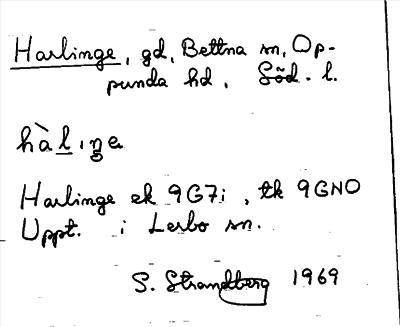 Harlinge, gd, Bettna sn, Op-
punda hd, Söd. l.
hàlıŋe
Harlinge ek 9G7i, tk 9GNO
Uppt. i Lerbo sn.
S. Strandberg 1969